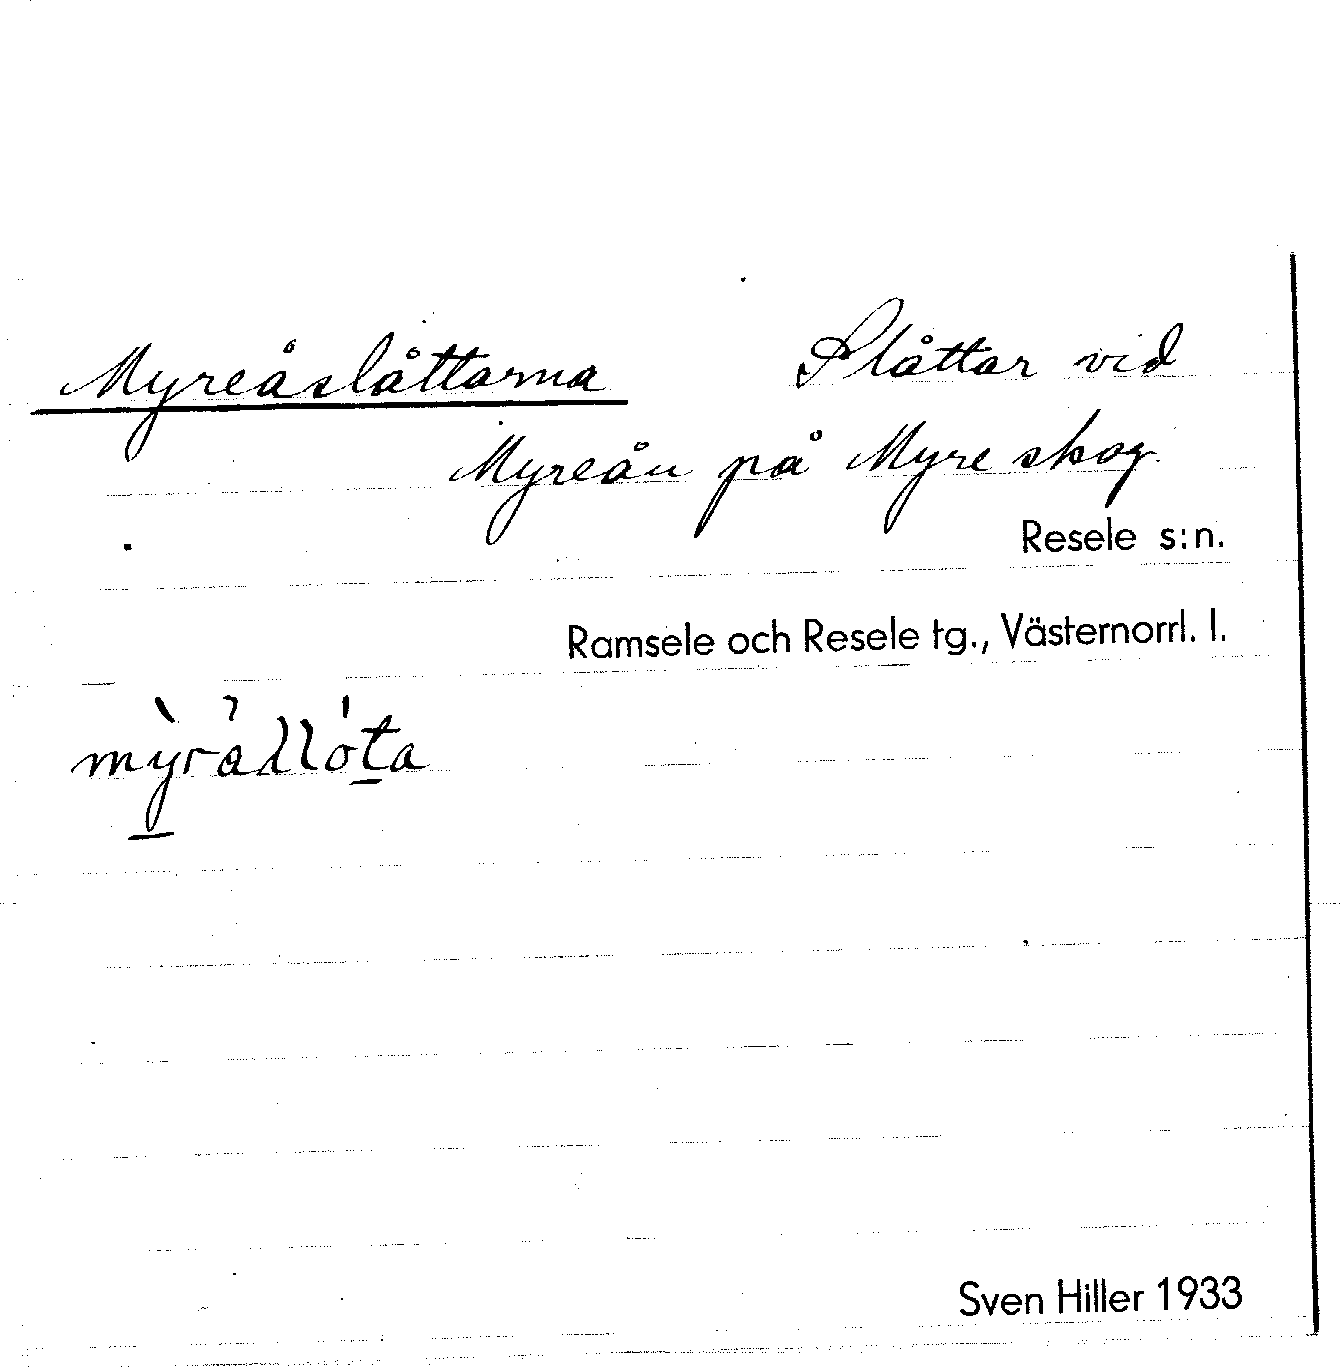 Myreåslåttarna Slåttar vid
Myreån på Myre skog.
Resele s:n.
Ramsele och Resele tg., Västernorrl. l.
Sven Hiller 1933